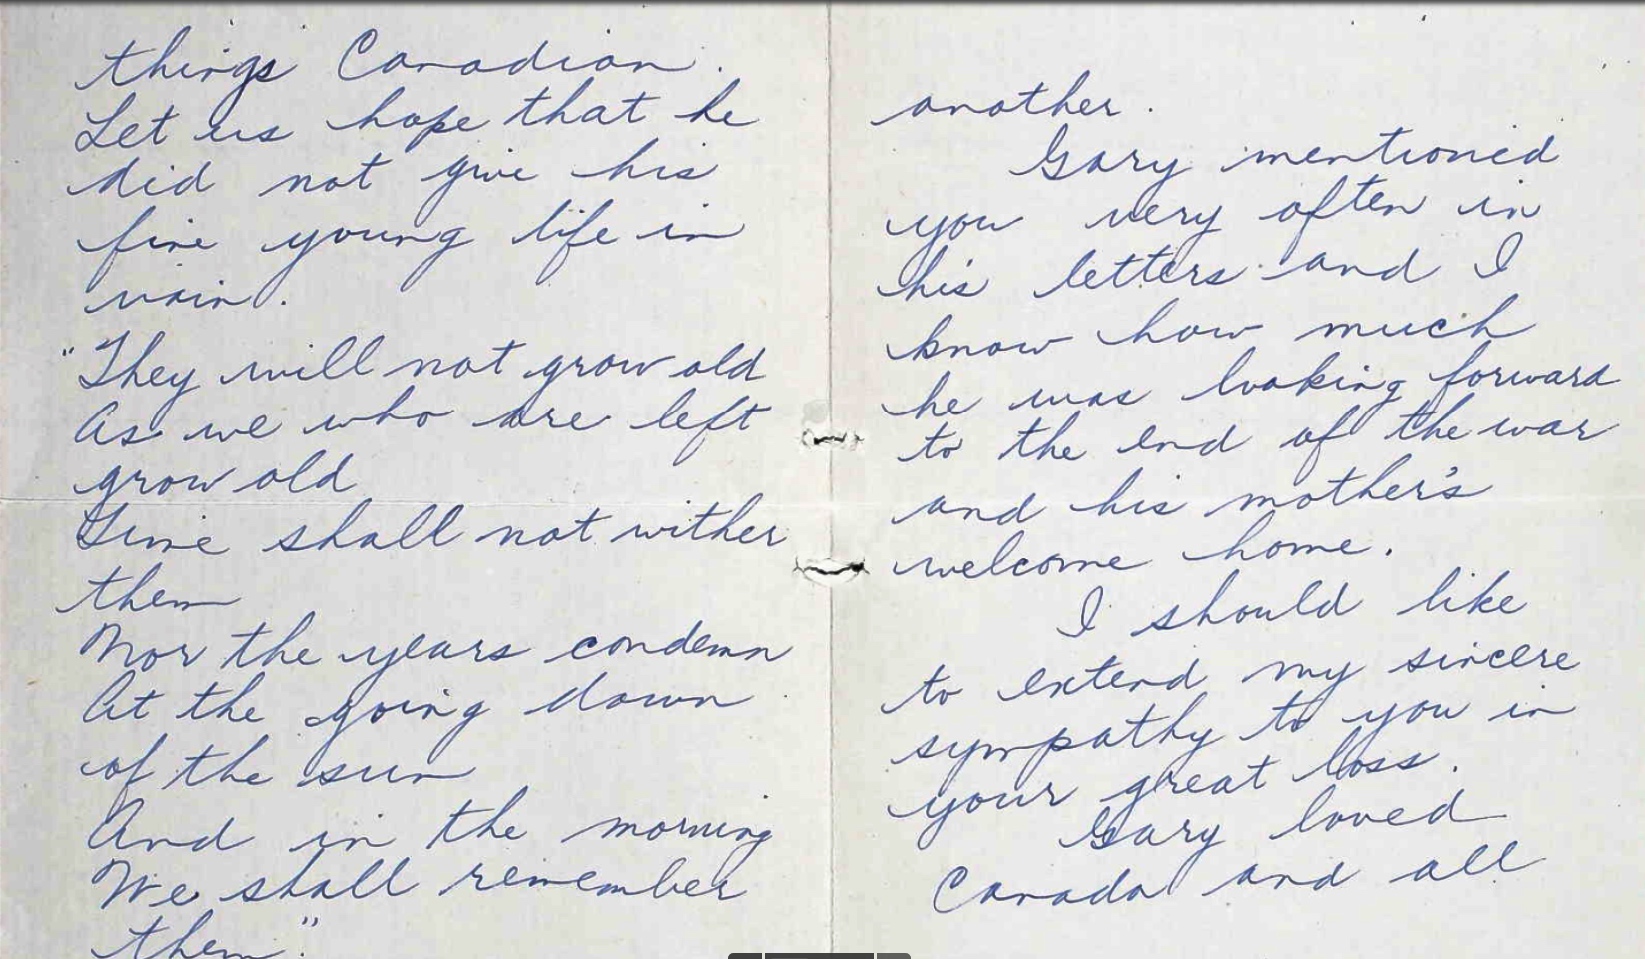 things Canadian.
Let us hope that he
did not give his
fine young life in
vain.
"They will not grow old
As we who are left
grow old
Time shall not wither
them
Nor the years condemn
At the going down
of the sun
And in the morning
We shall remember
them."
another.
Gary mentioned
you very often in
his letters and I
know how much
he was looking forward
to the end of the war
and his mother's
welcome home.
I should like
to extend my sincere
sympathy to you in
your great loss.
Gary loved
Canada and all